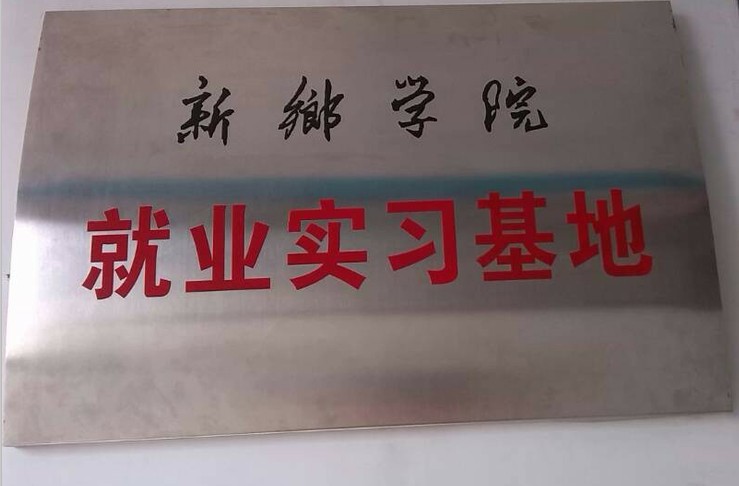 新鄉学院
就业实习基地